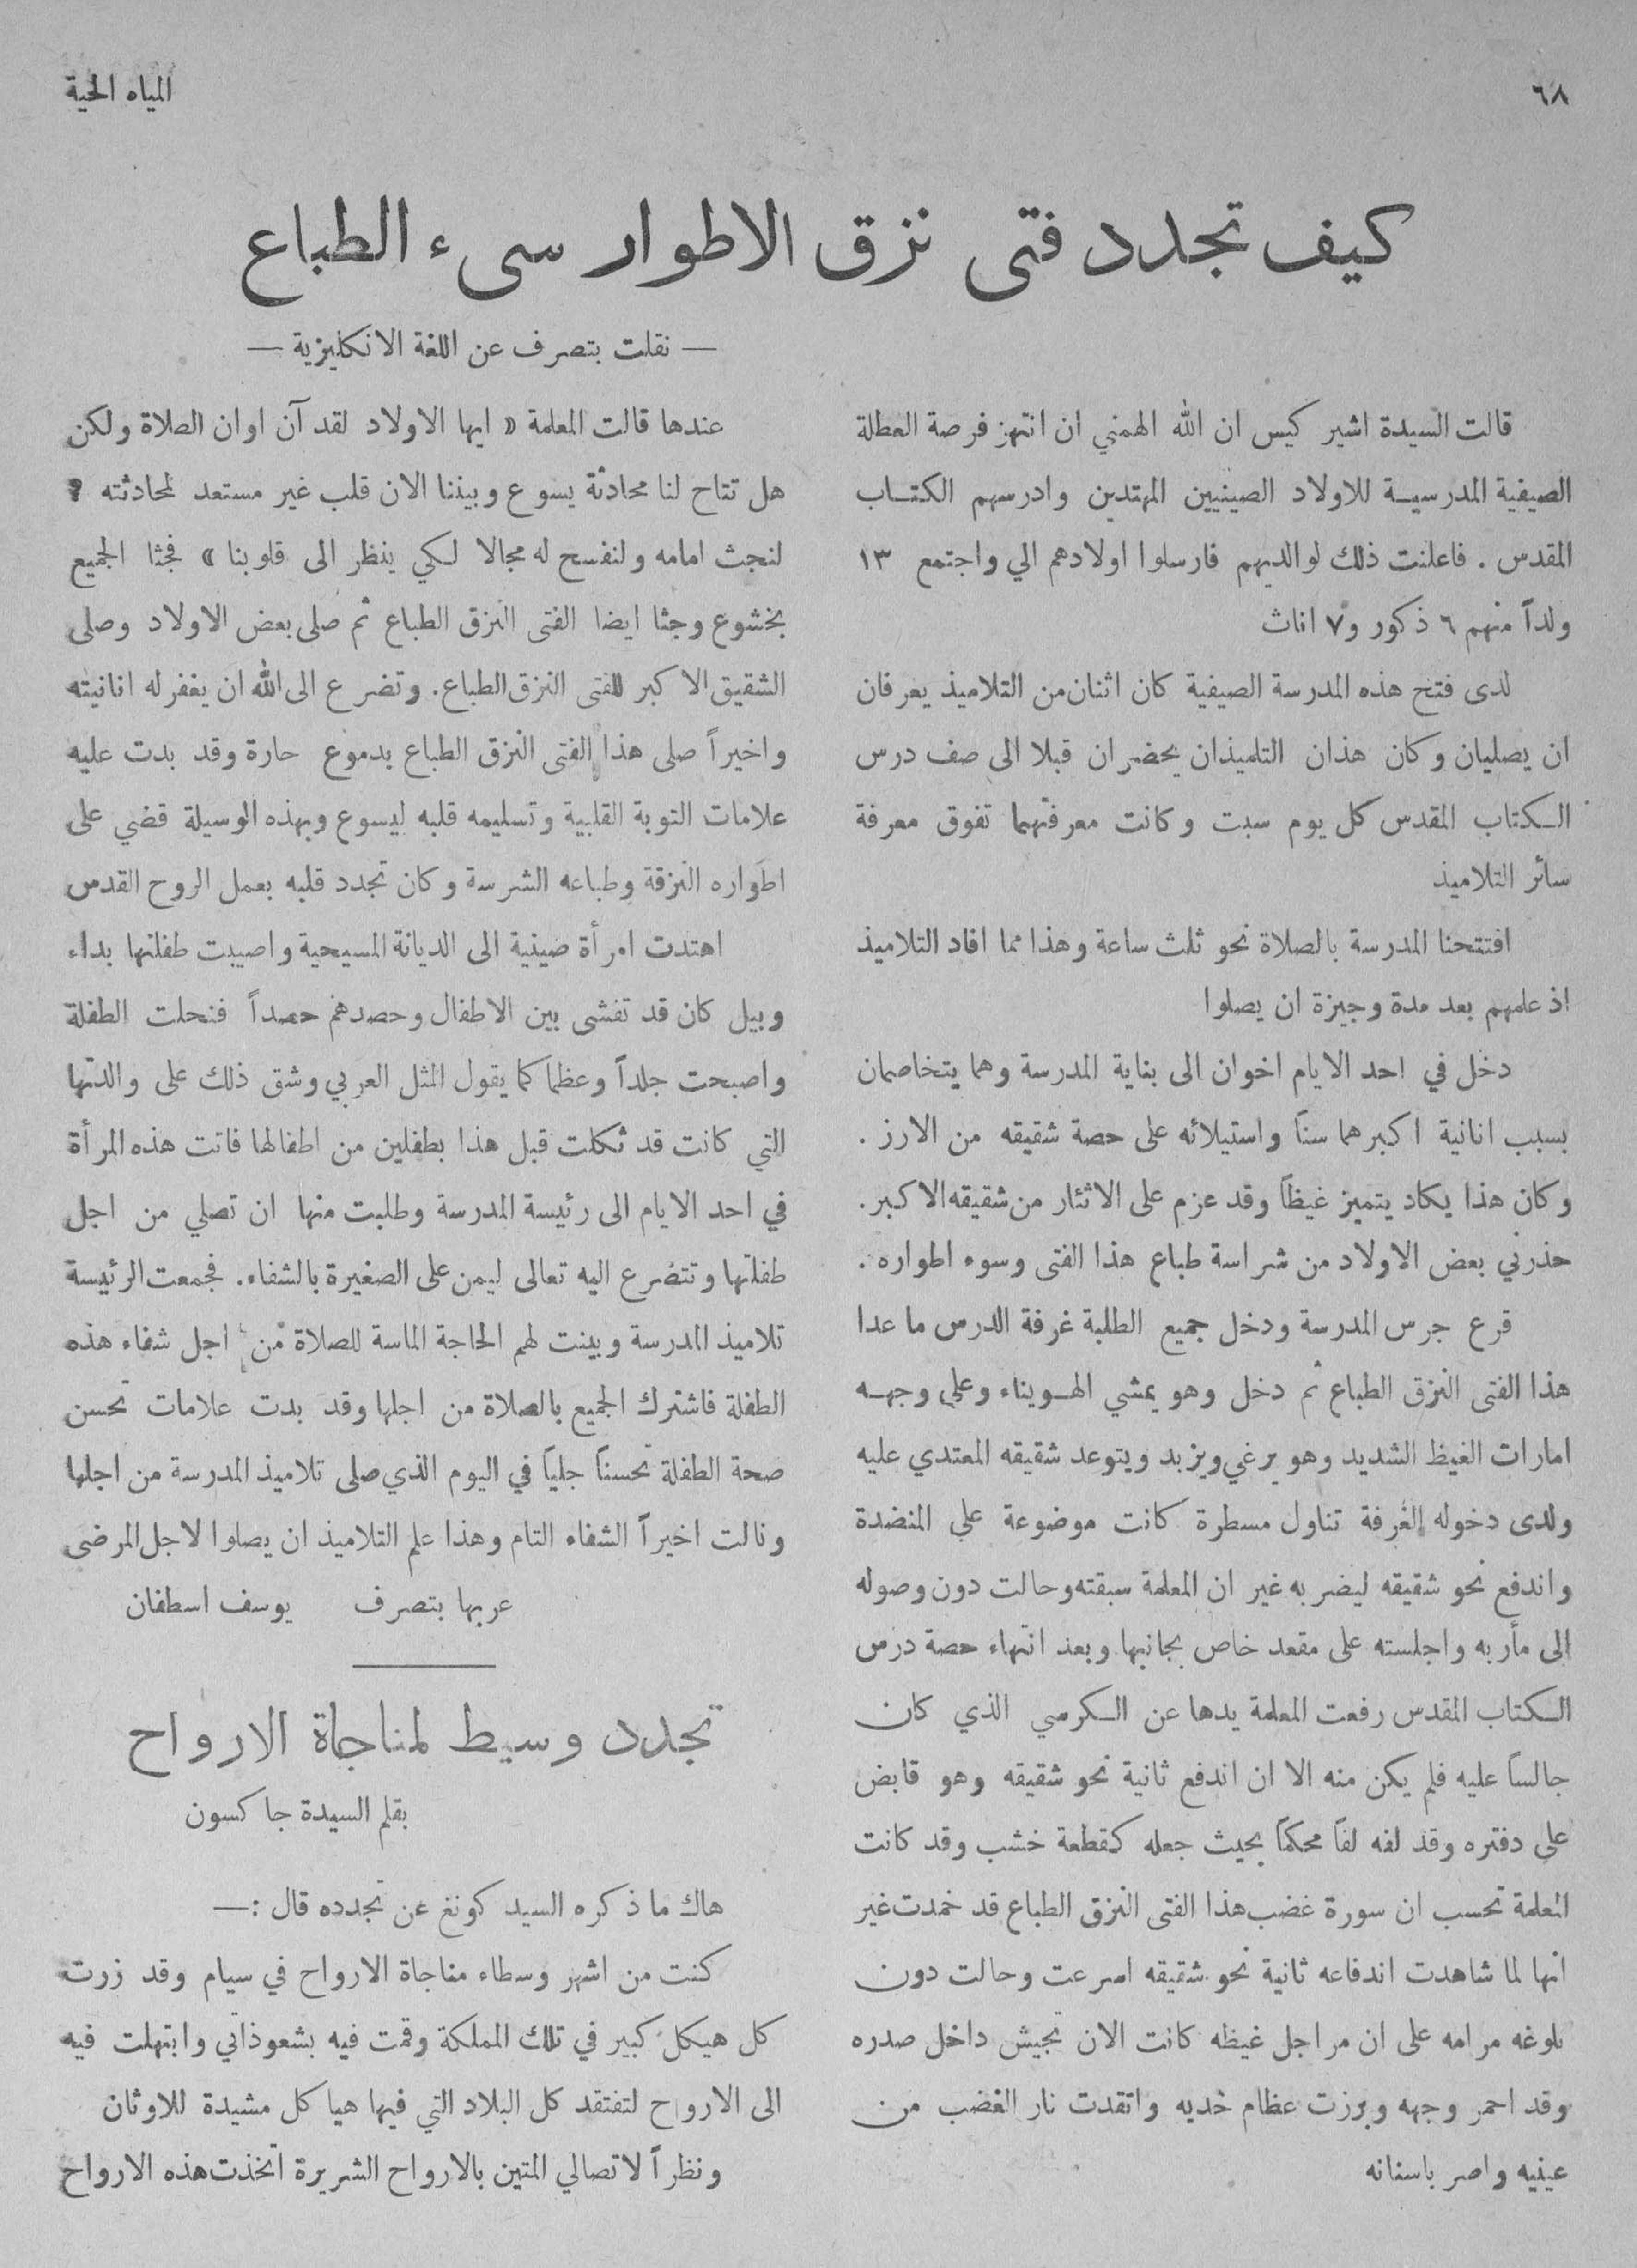 ٦٨
المياه الحية
كيف تجدد فتى نزق الاطوار سىء الطباع
— نقلت بتصرف عن اللغة الانكليزية —
قالت السيدة اشير كيس ان الله الهمني ان انتهز فرصة العطلة
الصيفية المدرسيـة للاولاد الصينيين المهتدين وادرسهم الكتـاب
المقدس . فاعلنت ذلك لوالديهم فارسلوا اولادهم الي واجتمع ١٣
ولداً منهم ٦ ذكور و٧ اناث
لدى فتح هذه المدرسة الصيفية كان اثنان من التلاميذ يعرفان
ان يصليان وكان هذان التلميذان يحضران قبلا الى صف درس
الـكتاب المقدس كل يوم سبت وكانت معرفتهما تفوق معرفة
سائر التلاميذ
افتتحنا المدرسة بالصلاة نحو ثلث ساعة وهذا مما افاد التلاميذ
اذ علمهم بعد مدة وجيزة ان يصلوا
دخل في احد الايام اخوان الى بناية المدرسة وهما يتخاصمان
بسبب انانية اكبرهما سناً واستيلائه على حصة شقيقه من الارز .
وكان هذا يكاد يتميز غيظاً وقد عزم على الاثئار من شقيقه الاكبر.
حذرني بعض الاولاد من شراسة طباع هذا الفتى وسوء اطواره .
قرع جرس المدرسة ودخل جميع الطلبة غرفة الدرس ما عدا
هذا الفتى النزق الطباع ثم دخل وهو يمشي الهـويناء وعلى وجهـه
امارات الغيظ الشديد وهو يرغي ويزبد ويتوعد شقيقه المعتدي عليه
ولدى دخوله الغرفة تناول مسطرة كانت موضوعة على المنضدة
واندفع نحو شقيقه ليضربه غير ان المعلمة سبقته وحالت دون وصوله
الى مأربه واجلسته على مقعد خاص بجانبها وبعد انتهاء حصة درس
الـكتاب المقدس رفعت المعلمة يدها عن الـكرسي الذي كان
جالساً عليه فلم يكن منه الا ان اندفع ثانية نحو شقيقه وهو قابض
على دفتره وقد لفه لفاً محكماً بحيث جعله كقطعة خشب وقد كانت
المعلمة تحسب ان سورة غضب هذا الفتى النزق الطباع قد خمدت غير
انها لما شاهدت اندفاعه ثانية نحو شقيقه اسرعت وحالت دون
بلوغه مرامه على ان مراجل غيظه كانت الان تجيش داخل صدره
وقد احمر وجهه وبرزت عظام خديه واتقدت نار الغضب من
عينيه واصر باسنانه
عندها قالت المعلمة « ايها الاولاد لقد آن اوان الصلاة ولكن
هل تتاح لنا محادثة يسوع وبيننا الان قلب غير مستعد لمحادثته ؟
لنجث امامه ولنفسح له مجالا لـكي ينظر الى قلوبنا » فجثا الجميع
بخشوع وجثا ايضا الفتى النزق الطباع ثم صلى بعض الاولاد وصلى
الشقيق الاكبر للفتى النزق الطباع. وتضرع الى الله ان يغفر له انانيته
واخيراً صلى هذا الفتى النزق الطباع بدموع حارة وقد بدت عليه
علامات التوبة القلبية وتسليمه قلبه ليسوع وبهذه الوسيلة قضي على
اطواره النزقة وطباعه الشرسة وكان تجدد قلبه بعمل الروح القدس
اهتدت امرأة صينية الى الديانة المسيحية واصيبت طفلتها بداء
وبيل كان قد تفشى بين الاطفال وحصدهم حصداً فنحلت الطفلة
واصبحت جلداً وعظما كما يقول المثل العربي وشق ذلك على والدتها
التي كانت قد ثكلت قبل هذا بطفلين من اطفالها فاتت هذه المرأة
في احد الايام الى رئيسة المدرسة وطلبت منها ان تصلي من اجل
طفلتها وتتضرع اليه تعالى ليمن على الصغيرة بالشفاء. فجمعت الرئيسة
تلاميذ المدرسة وبينت لهم الحاجة الماسة للصلاة من اجل شفاء هذه
الطفلة فاشترك الجميع بالصلاة من اجلها وقد بدت علامات تحسن
صحة الطفلة تحسناً جلياً في اليوم الذي صلى تلاميذ المدرسة من اجلها
ونالت اخيراً الشفاء التام وهذا علم التلاميذ ان يصلوا لاجل المرضى
عربها بتصرف يوسف اسطفان
تجدد وسيط لمناجاة الارواح
بقلم السيدة جاكسون
هاك ما ذكره السيد كونغ عن تجدده قال :—
كنت من اشهر وسطاء مناجاة الارواح في سيام وقد زرت
كل هيكل كبير في تلك المملكة وقمت فيه بشعوذاتي وابتهلت فيه
الى الارواح لتفتقد كل البلاد التي فيها هياكل مشيدة للاوثان
ونظراً لاتصالي المتين بالارواح الشريرة اتخذت هذه الارواح